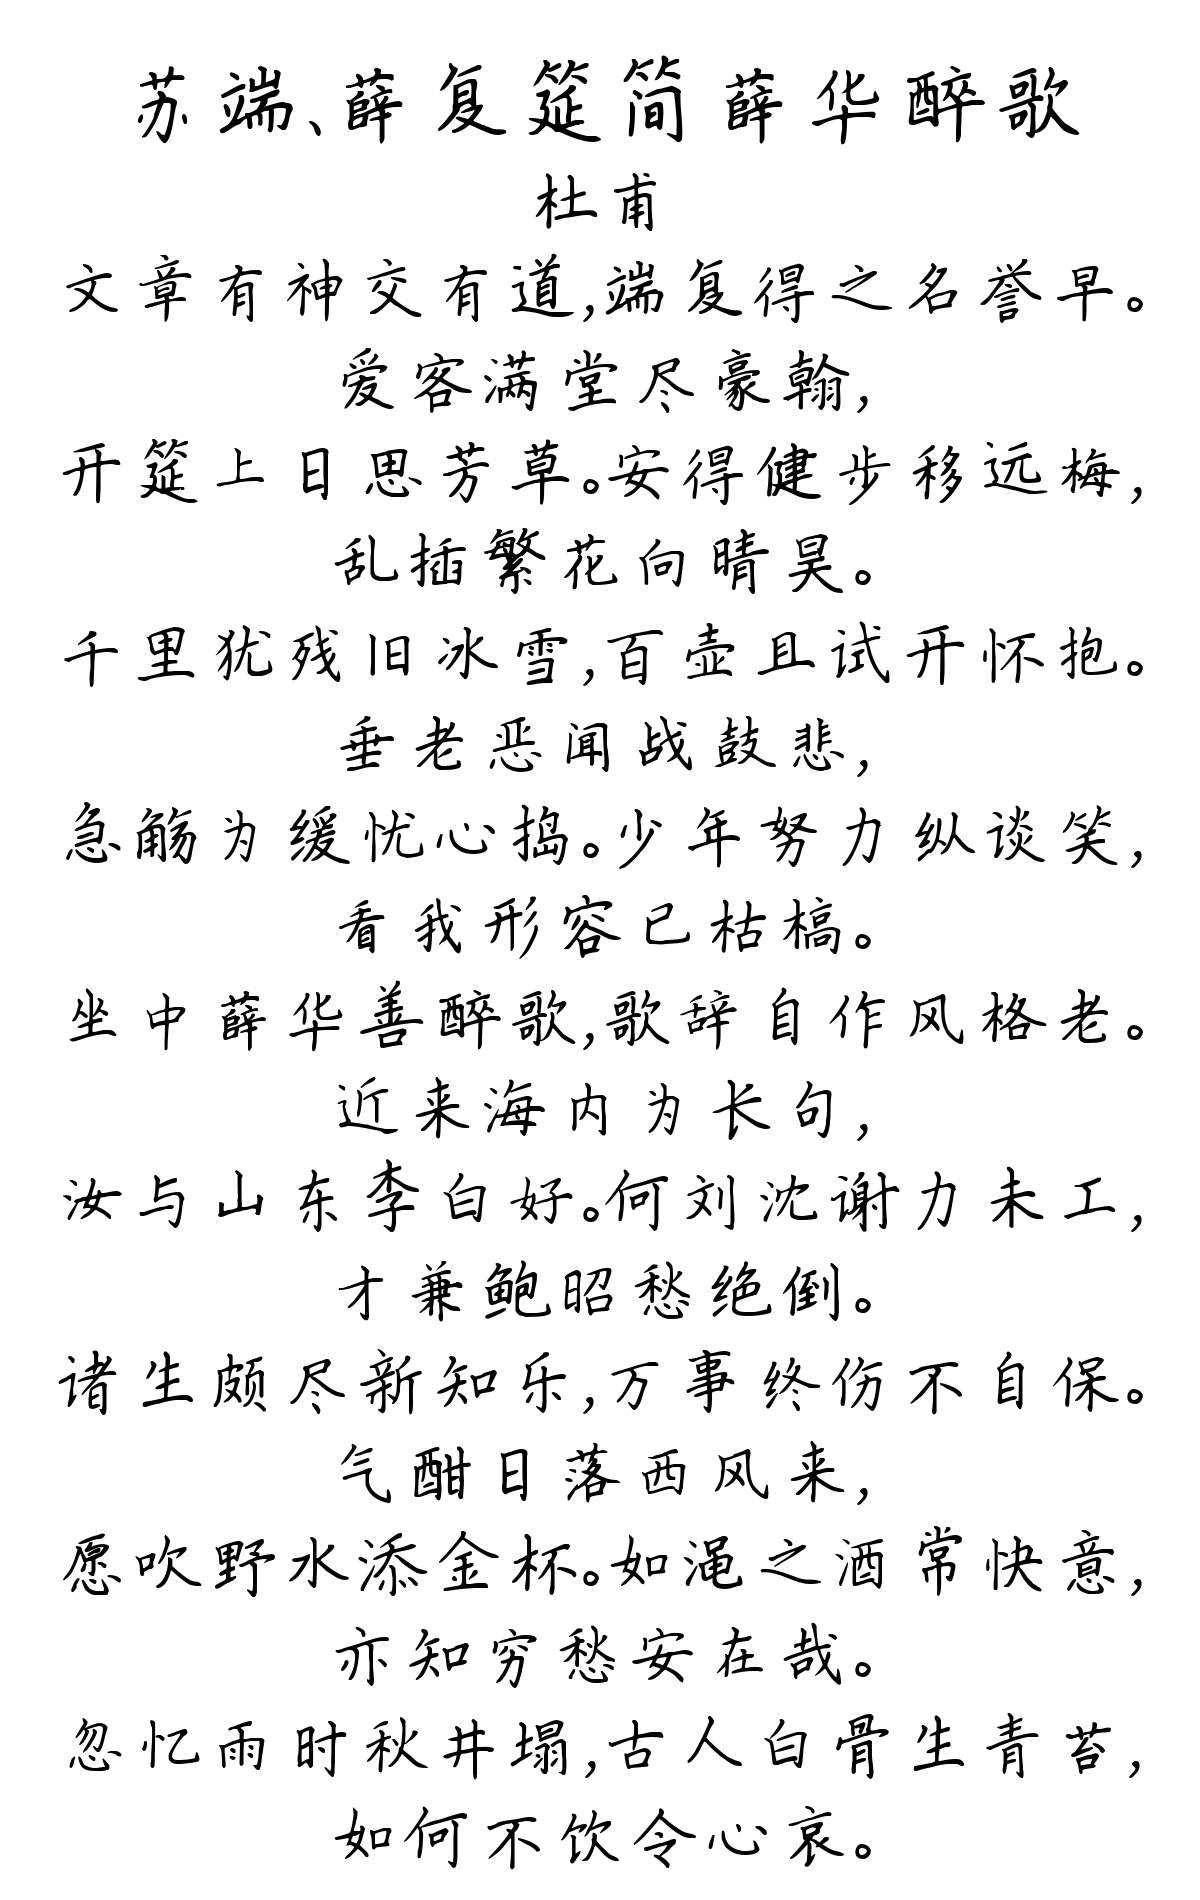 苏端、薛复筵简薛华醉歌
杜甫
文章有神交有道,端复得之名誉早。
爱客满堂尽豪翰,
开筵上日思芳草。安得健步移远梅,
乱插繁花向晴昊。
千里犹残旧冰雪,百壶且试开怀抱。
垂老恶闻战鼓悲,
急觞为缓忧心捣。少年努力纵谈笑,
看我形容已枯槁。
坐中薛华善醉歌,歌辞自作风格老。
近来海内为长句,
汝与山东李白好。何刘沈谢力未工,
才兼鲍昭愁绝倒。
诸生颇尽新知乐,万事终伤不自保。
气酣日落西风来,
愿吹野水添金杯。如渑之酒常快意,
亦知穷愁安在哉。
忽忆雨时秋井塌,古人白骨生青苔,
如何不饮令心哀。